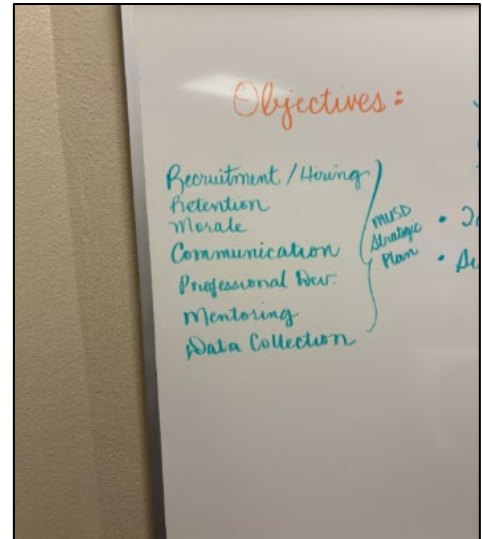 Objectives:
Recruitment / Hiring
Retention
Morale
Communication
Professional Dev.
Mentoring
Data Collection
MUSD
Strategic
Plan